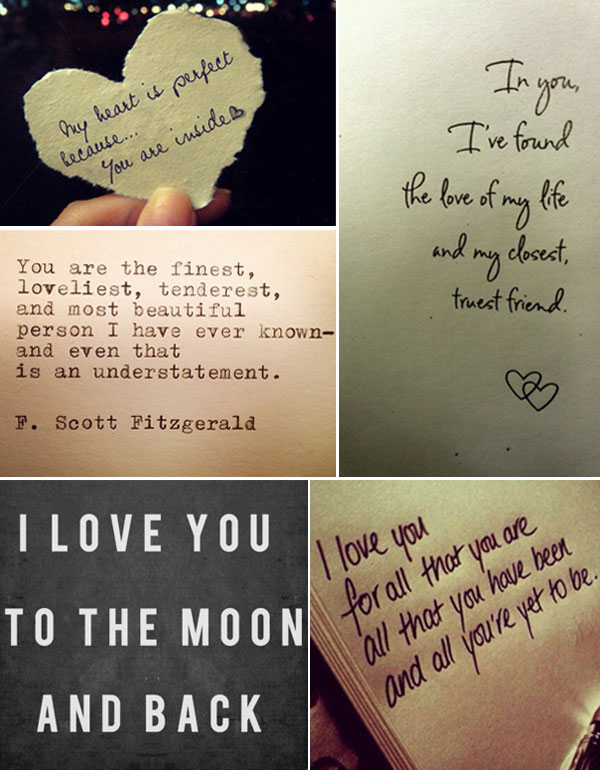 My heart is perfect
because...
You are inside
In you,
I've found
the love of my life
and my closest,
truest friend.
You are the finest,
loveliest, tenderest,
and most beautiful
person I have ever known—
and even that
is an understatement.
F. Scott Fitzgerald
I LOVE YOU
TO THE MOON
AND BACK
I love you
for all that you are
all that you have been
and all you're yet to be.